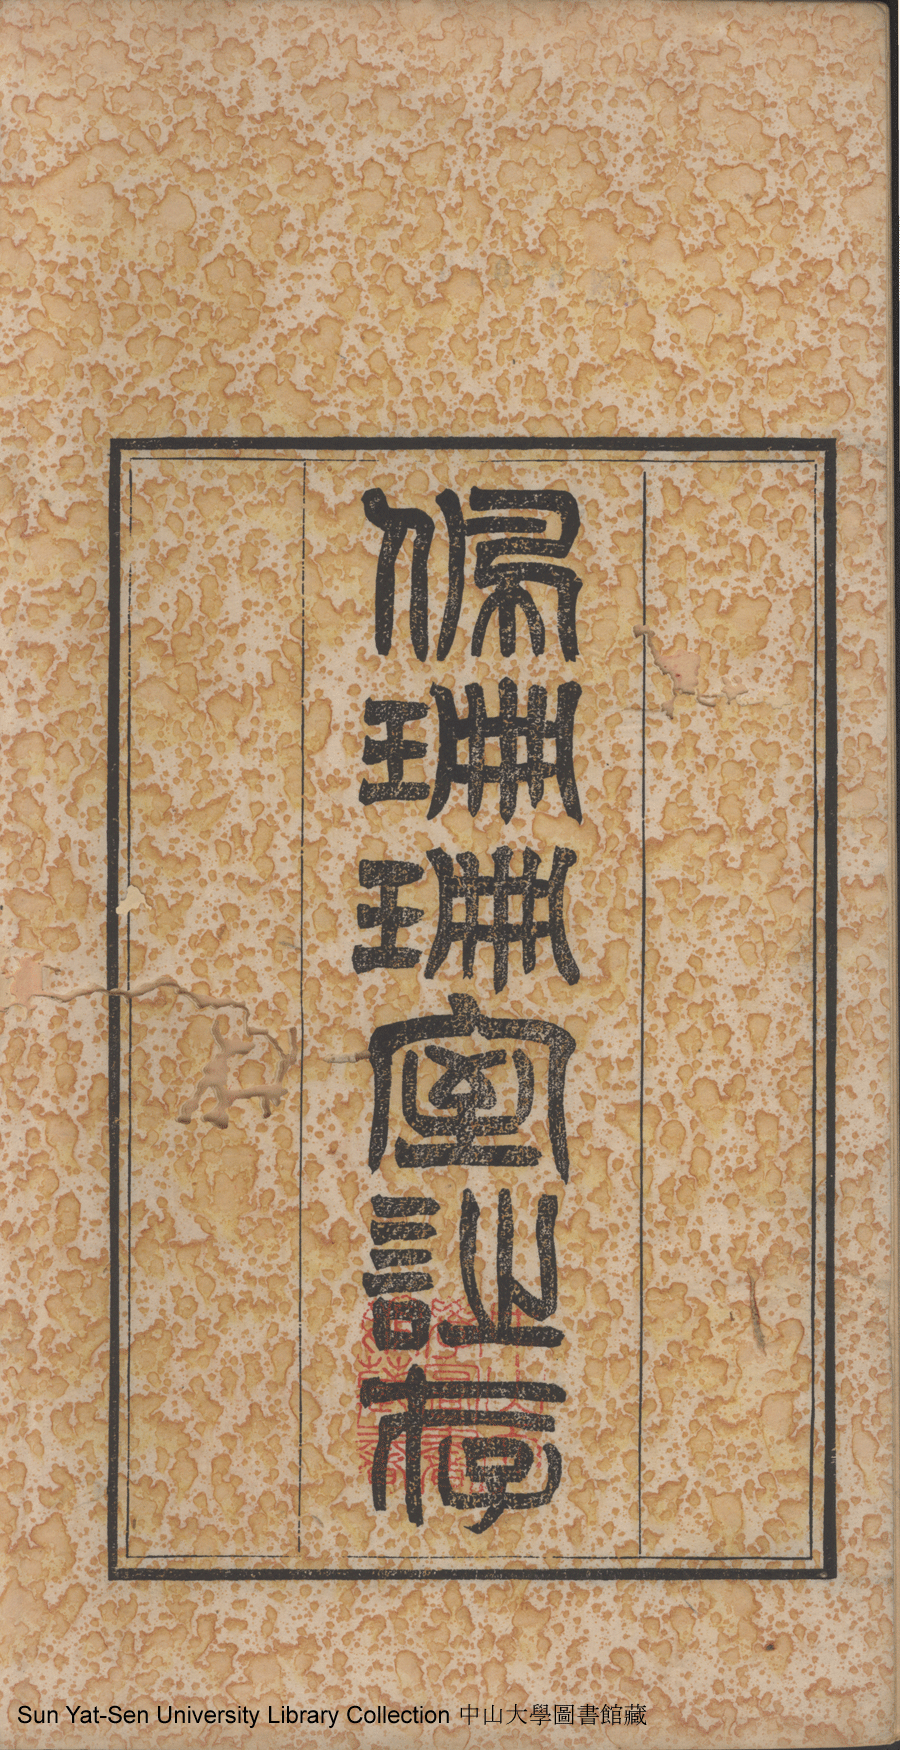 佩珊珊室詩存
Sun Yat-Sen University Library Collection 中山大學圖書館藏